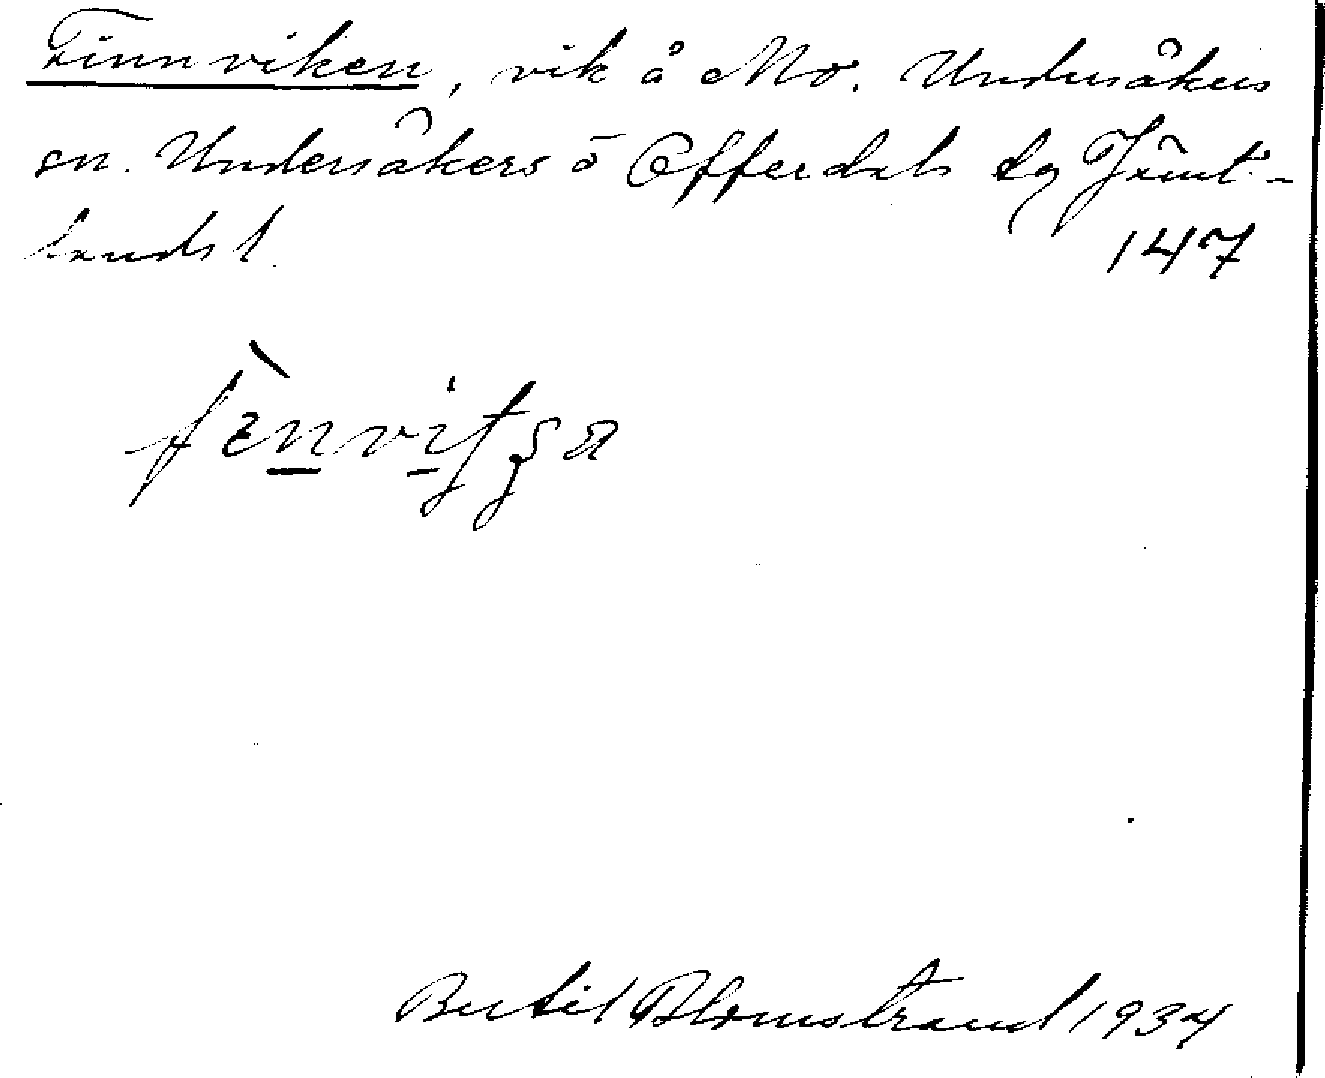 Finnviken, vik å Mo. Undersåkers
sn. Undersåkers o Offerdals tg Jämt-
lands l.
147
Bertil Blomstrand 1934